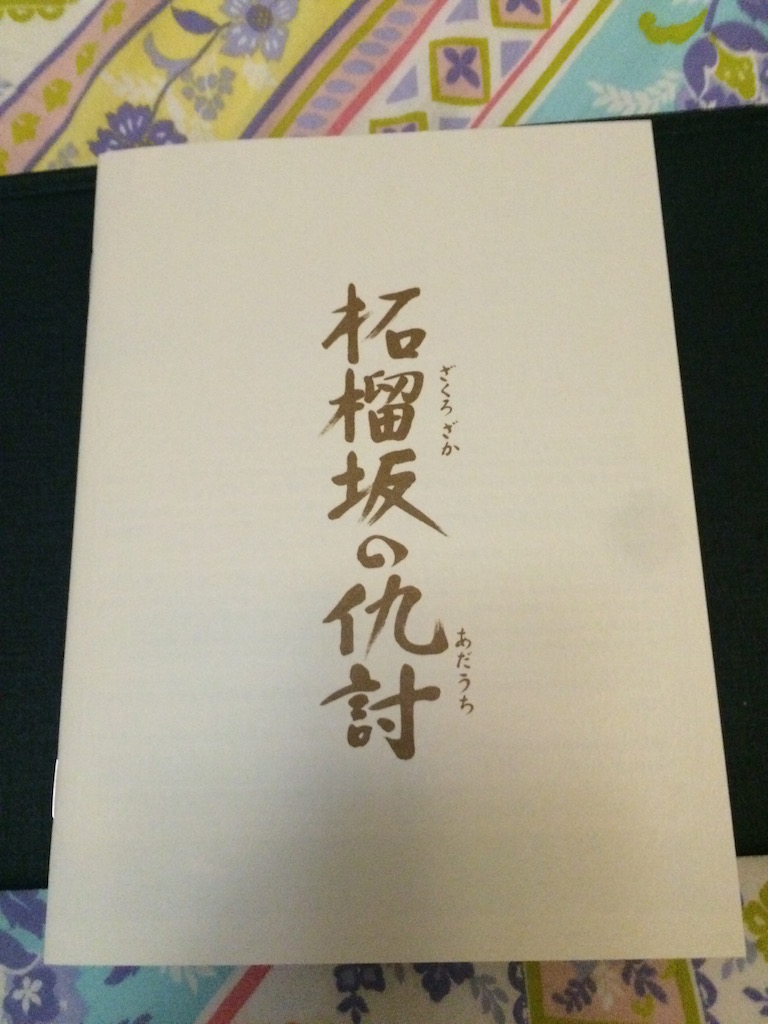 柘榴坂の仇討
ざくろざか
あだうち